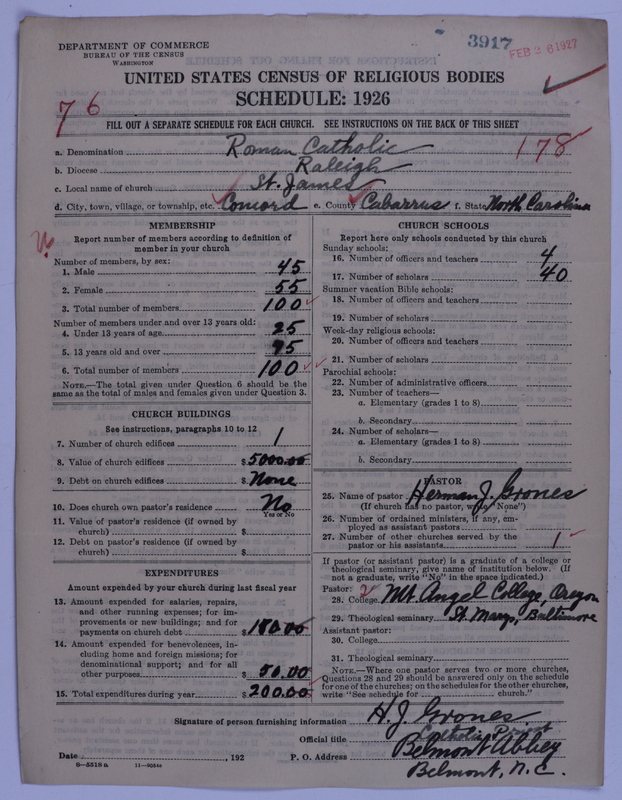 DEPARTMENT OF COMMERCE
BUREAU OF THE CENSUS
WASHINGTON
3917
FEB 26 1927
UNITED STATES CENSUS OF RELIGIOUS BODIES
SCHEDULE: 1926
76
FILL OUT A SEPARATE SCHEDULE FOR EACH CHURCH. SEE INSTRUCTIONS ON THE BACK OF THIS SHEET
a. Denomination Roman Catholic 178
b. Diocese Raleigh
c. Local name of church St. James
d. City, town, village, or township, etc. Concord e. County Cabarrus f. State North Carolina
MEMBERSHIP
Report number of members according to definition of
member in your church
Number of members, by sex:
1. Male 45
2. Female 55
3. Total number of members 100
Number of members under and over 13 years old:
4. Under 13 years of age 25
5. 13 years old and over 75
6. Total number of members 100
NOTE.—The total given under Question 6 should be the
same as the total of males and females given under Question 3.
CHURCH BUILDINGS
See instructions, paragraphs 10 to 12
7. Number of church edifices 1
8. Value of church edifices $5000.00
9. Debt on church edifices $None
10. Does church own pastor's residence No
Yes or No
11. Value of pastor's residence (if owned by
church) $
12. Debt on pastor's residence (if owned by
church) $
EXPENDITURES
Amount expended by your church during last fiscal year
13. Amount expended for salaries, repairs,
and other running expenses; for im-
provements or new buildings; and for
payments on church debt $150.00
14. Amount expended for benevolences, in-
cluding home and foreign missions; for
denominational support; and for all
other purposes $50.00
15. Total expenditures during year $200.00
CHURCH SCHOOLS
Report here only schools conducted by this church
Sunday schools:
16. Number of officers and teachers 4
17. Number of scholars 40
Summer vacation Bible schools:
18. Number of officers and teachers
19. Number of scholars
Week-day religious schools:
20. Number of officers and teachers
21. Number of scholars
Parochial schools:
22. Number of administrative officers
23. Number of teachers—
a. Elementary (grades 1 to 8)
b. Secondary
24. Number of scholars—
a. Elementary (grades 1 to 8)
b. Secondary
PASTOR
25. Name of pastor Herman J. Grones
(If church has no pastor, write "None")
26. Number of ordained ministers, if any, em-
ployed as assistant pastors
27. Number of other churches served by the
pastor or his assistants 1
If pastor (or assistant pastor) is a graduate of a college or
theological seminary, give name of institution below. (If
not a graduate, write "No" in the space indicated.)
Pastor:
28. College Mt. Angel College, Oregon
29. Theological seminary St. Marys, Baltimore
Assistant pastor:
30. College
31. Theological seminary
NOTE.—Where one pastor serves two or more churches,
Questions 28 and 29 should be answered only on the schedule
for one of the churches; on the schedules for the other churches,
write "See schedule for church."
Signature of person furnishing information H. J. Grones
Official title Catholic Priest
Date , 192 P. O. Address Belmont Abbey
8—5518 a 11—9034a Belmont, N. C.